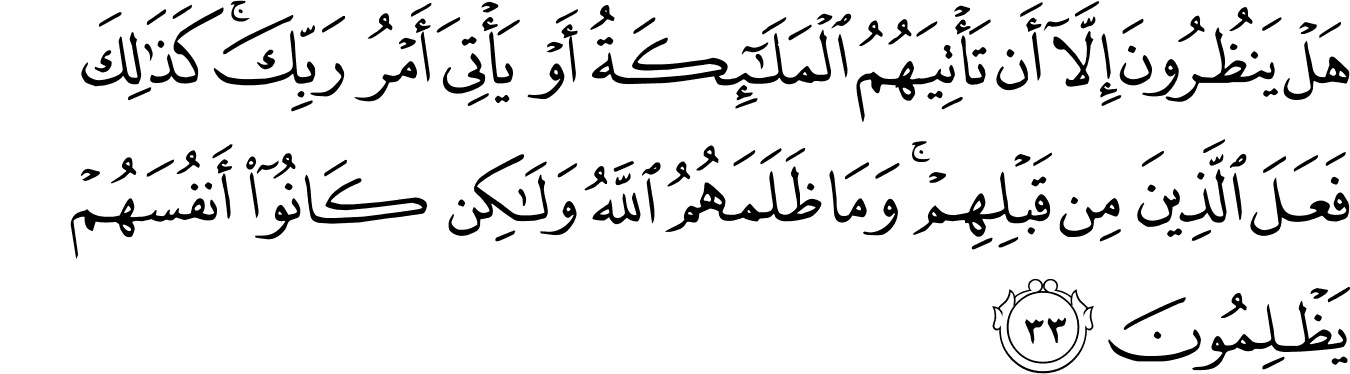 هَلۡ يَنظُرُونَ إِلَّآ أَن تَأۡتِيَهُمُ ٱلۡمَلَٰٓئِكَةُ أَوۡ يَأۡتِيَ أَمۡرُ رَبِّكَۚ كَذَٰلِكَ
فَعَلَ ٱلَّذِينَ مِن قَبۡلِهِمۡۚ وَمَا ظَلَمَهُمُ ٱللَّهُ وَلَٰكِن كَانُوٓاْ أَنفُسَهُمۡ
يَظۡلِمُونَ ٣٣